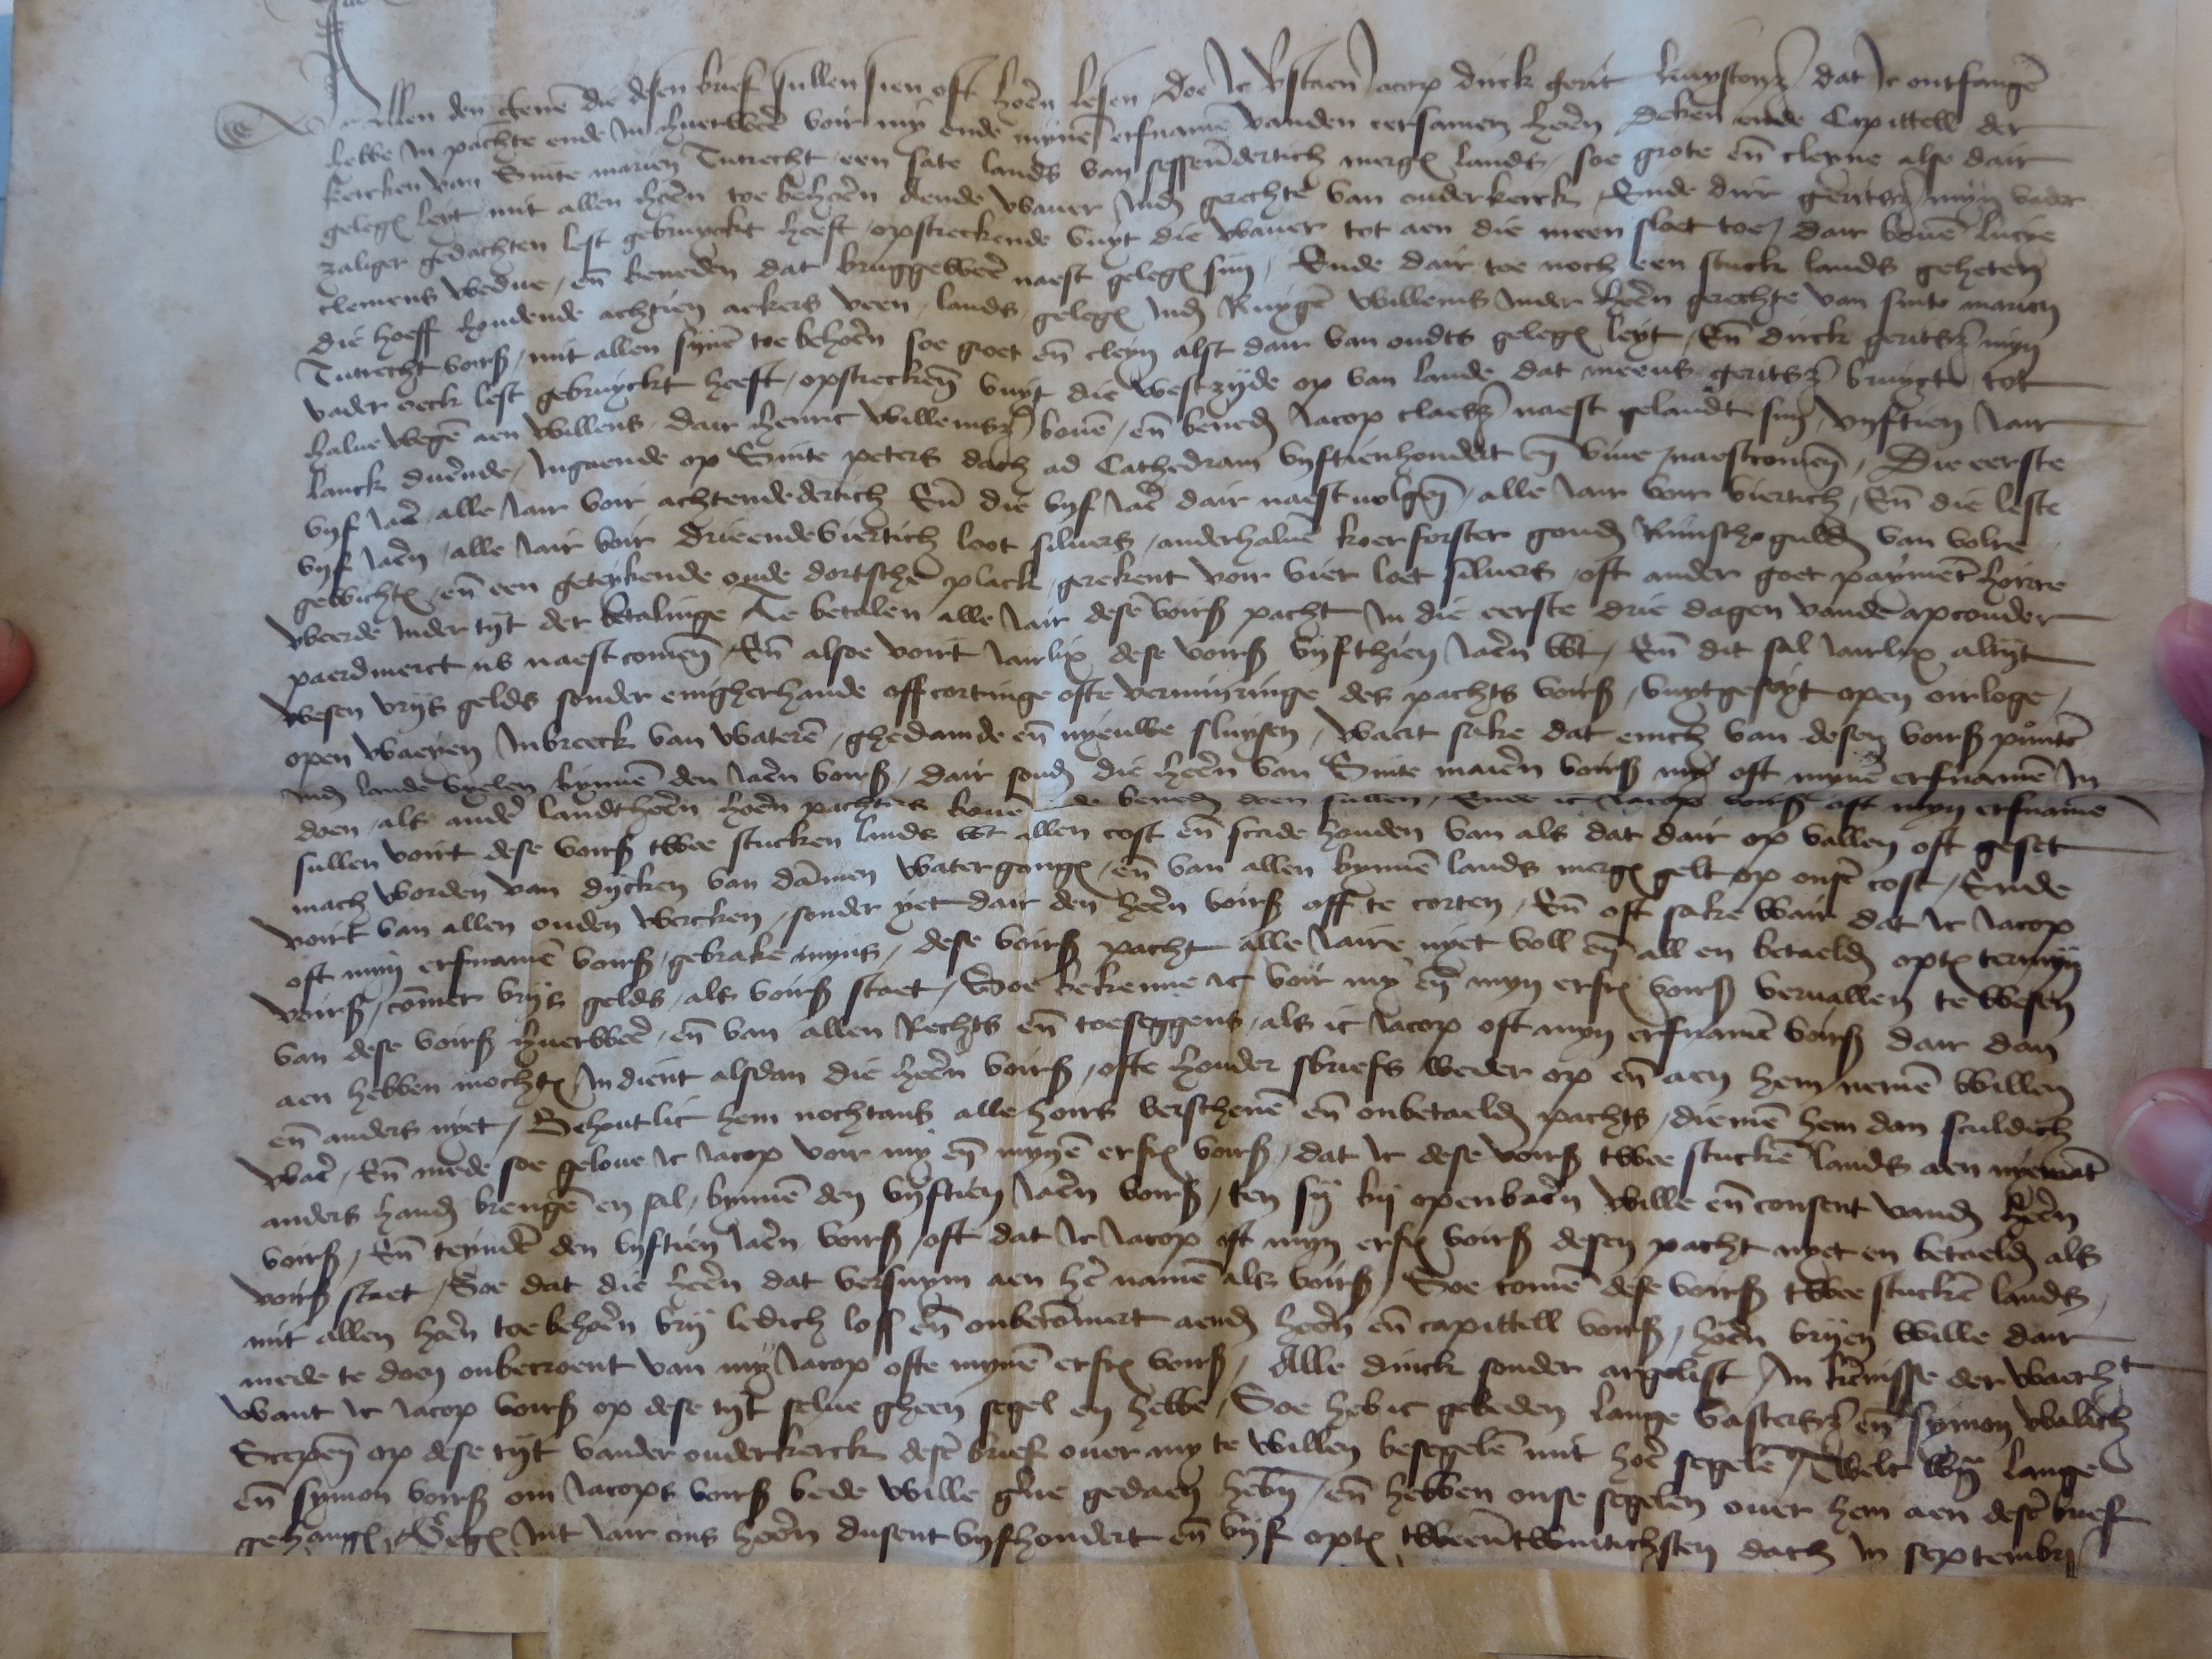 Allen den genen̄ die desen brief sullen sien oft hoērn lesen doe Ic verstaen Jacop dirck gerit luystenz dat Ic ontfangē
hebbe in pachte ende in huerweer voir my ende mynē erfnamē vanden eersamen heern Deken ende Capittell der
kercken van Sinte marien Tutrecht een sate lands van sessendertich mergen lands soe grote en̄ cleyne alse dair
gelegen leyt mit allen hoērn toe behoērn aende waver inden gerechte van ouderkerck Ende dirc geritsz myn vader
zaliger gedachten lest gebruyckt heeft opstreckende vuyt die waver tot aen die meen sloet toe dair bovē lucye
clemens wedue en̄ beneden dat bruggeweer naest gelegen sijn Ende dair toe noch een stuck lands geheten
die hoeff houdende achtien ackers veen lands gelegen inden Ruygē willems inder heern gerechte van sinte marien
Tutrecht voirs mit allen sijnē toe behoērn soe groet en̄ cleyn alst dair van oudts gelegen leyt En̄ dirck geritsz myn
vader oeck lest gebruyckt heeft opstreckēn vuyt die westzyde op van lande dat meeus geritsz bruyct tot
halve wegē aen willens dair henric willemsz bovē en̄ beneden Jacop claesz naest gelandt sijn vyftien iair
lanck duerende ingaende op Sinte peters dach ad Cathedram vyftienhondert en̄ vive naestcomēn Die eerste
vyf iaer alle iair voir achtendedertich En̄ die vyf iaer dair naest volgēn alle iair voir viertich En̄ die leste
vyf iaern alle iair voir drieendeviertich loot silvers anderhalvē koerforster gouden Rijnsche gulden van volre
gewichten en̄ een geteykende oude dortsche plack gerekent voir vier loet silvers oft ander goet payment hoirre
weerde inder tyt der betalinge Te betalen alle iair dese voirs pacht in die eerste drie dagen vanden apconder
paerdmerct nv naestcomēn En̄ alsoe voirt iairlix dese voirs vyfthien iaern wt En̄ dit sal iairlix altyt
wesen vrijs gelds sonder enigherhande offcortinge ofte verminringe des pachts voirs vuytgeseyt open oirloge
open waeren inbreeck van waterē ghedamde en̄ nyeuwe sluysen Waert sake dat enich van desen voirs punten
inden lande vyelen bynnē den iaern voirs dair souden die heern van Sinte marien voirs my oft mynē erfnamē in
doen als ander landtheern hoern pachters bovē ende beneden doen sullen Ende ic Jacop voirs oft myn erfnamē
sullen voirt dese voirs twee stucken lands wt allen cost en̄ scade houden van als dat dair op vallen oft geset
mach worden van dycken van dāmen watergangen en̄ van allen bynnē lands mergen gelt op onsen cost Ende
voirt van allen ouden wercken sonder yet dair den heern voirs off te corten En̄ oft sake wair dat ic Jacop
oft myn erfnamē voirs gebrake myns dese voirs pacht alle iaire nyet voll en̄ all en betaelden opten termyn
voirs cōmer vrijs gelds als voirs staet Soe bekenne ic voir my en̄ myn erfn voirs vervallen te wesen
van dese voirs huerweer en̄ van allen Rechts en̄ toeseggens als ic Jacop oft myn erfnamē voirs dair dan
aen hebben mochten Indient alsdan die heern voirs ofte houder sbriefs weder op en̄ aen hem nemē willen
en̄ anders nyet Behoutlic hem nochtans alle hoirs verschenē en̄ onbetaelden pachts diemē hem dan sculdich
waer En̄ mede soe gelove ic Jacop voir my en̄ mynē erfn voirs dat ic dese voirs twee stuckē lands aen nyemāt
anders handen brengē en sal bynnē den vyftien iaern voirs ten sij bij openbaern wille en̄ consent vanden heern
voirs En̄ teynden den vyftien iaern voirs oft dat ic Jacop oft myn erfn voirs desen pacht nyet en betaelden als
voirs staet Soe dat die heern dat versuym aen hē namē als voirs Soe comē dese voirs twee stuckē lands
mit allen hoērn toe behoērn vrij ledich loss en̄ onbecōmert aenden heern en̄ capittell voirs hoērn vrijen wille dair
mede te doen onbecroent van my Jacop ofte mynē erfn voirs Alle dinck sonder argelist In kennisse der waerht
Want ic Jacop voirs op dese tyt selve gheen segel en hebbe Soe heb ic gebeden lange vastersz en̄ symon walich
Scepen op dese tyt vander ouderkerck desen brief over my te willen besegelē mit hoer segelē Twelc wij lange
en̄ symon voirs om Jacops voirs bede wille gērne gedaen hebn en̄ hebben onse segelen over hem aen desen brief
gehangen Gegen int iair ons heern dusent vyfhondert en̄ vyf opten tweentwintichsten dach in septembri